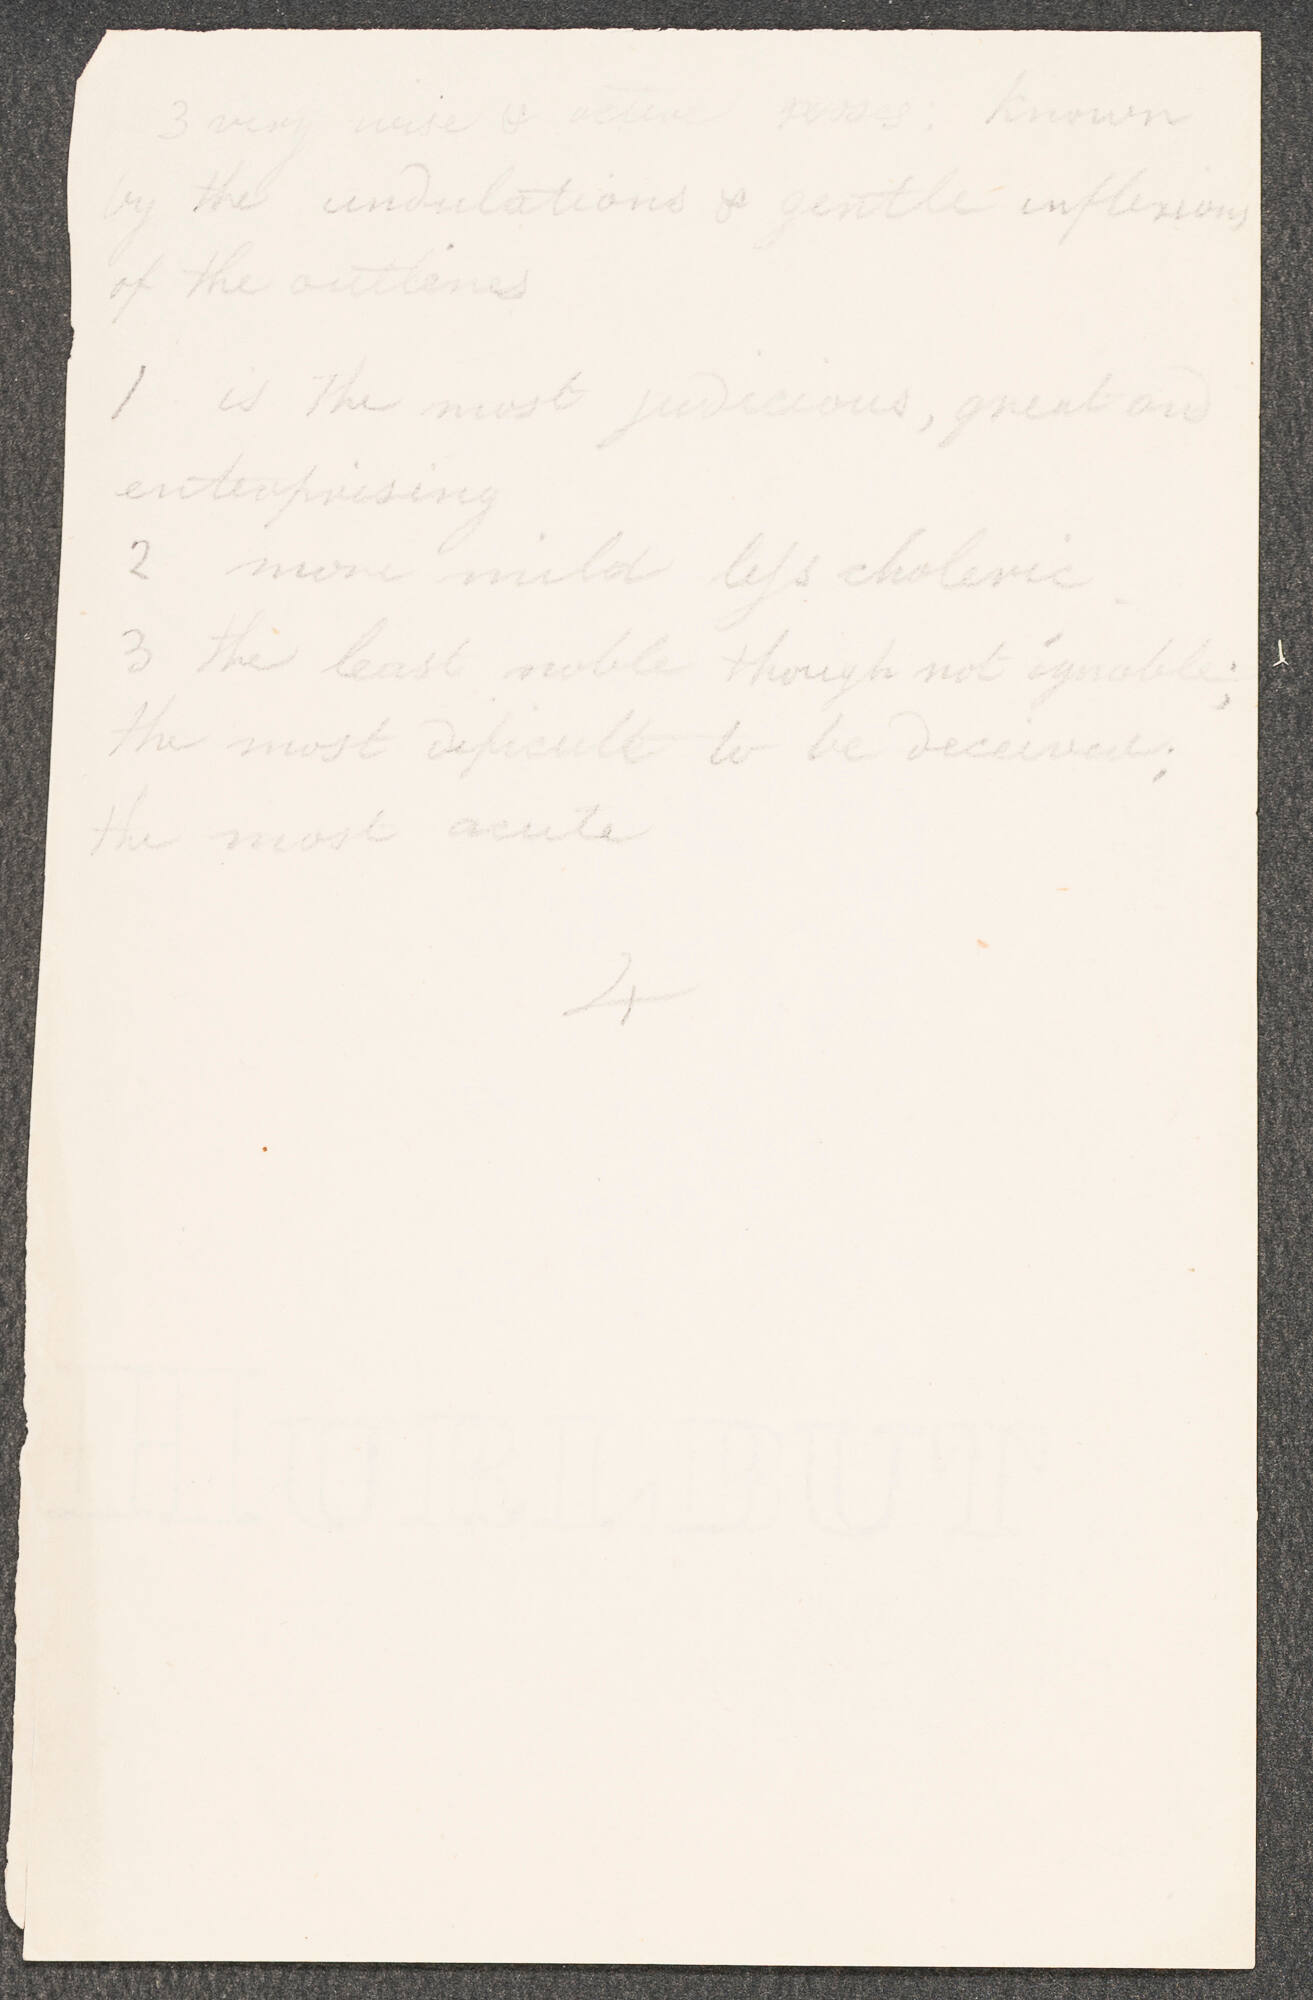 3 very wise & active noses: known
by the undulations & gentle inflexions
of the outlines
1 is the most judicious, great and
enterprising
2 more mild less choleric
3 the least noble though not ignoble;
the most dificult to be deceived;
the most acute
4
HURLBUT